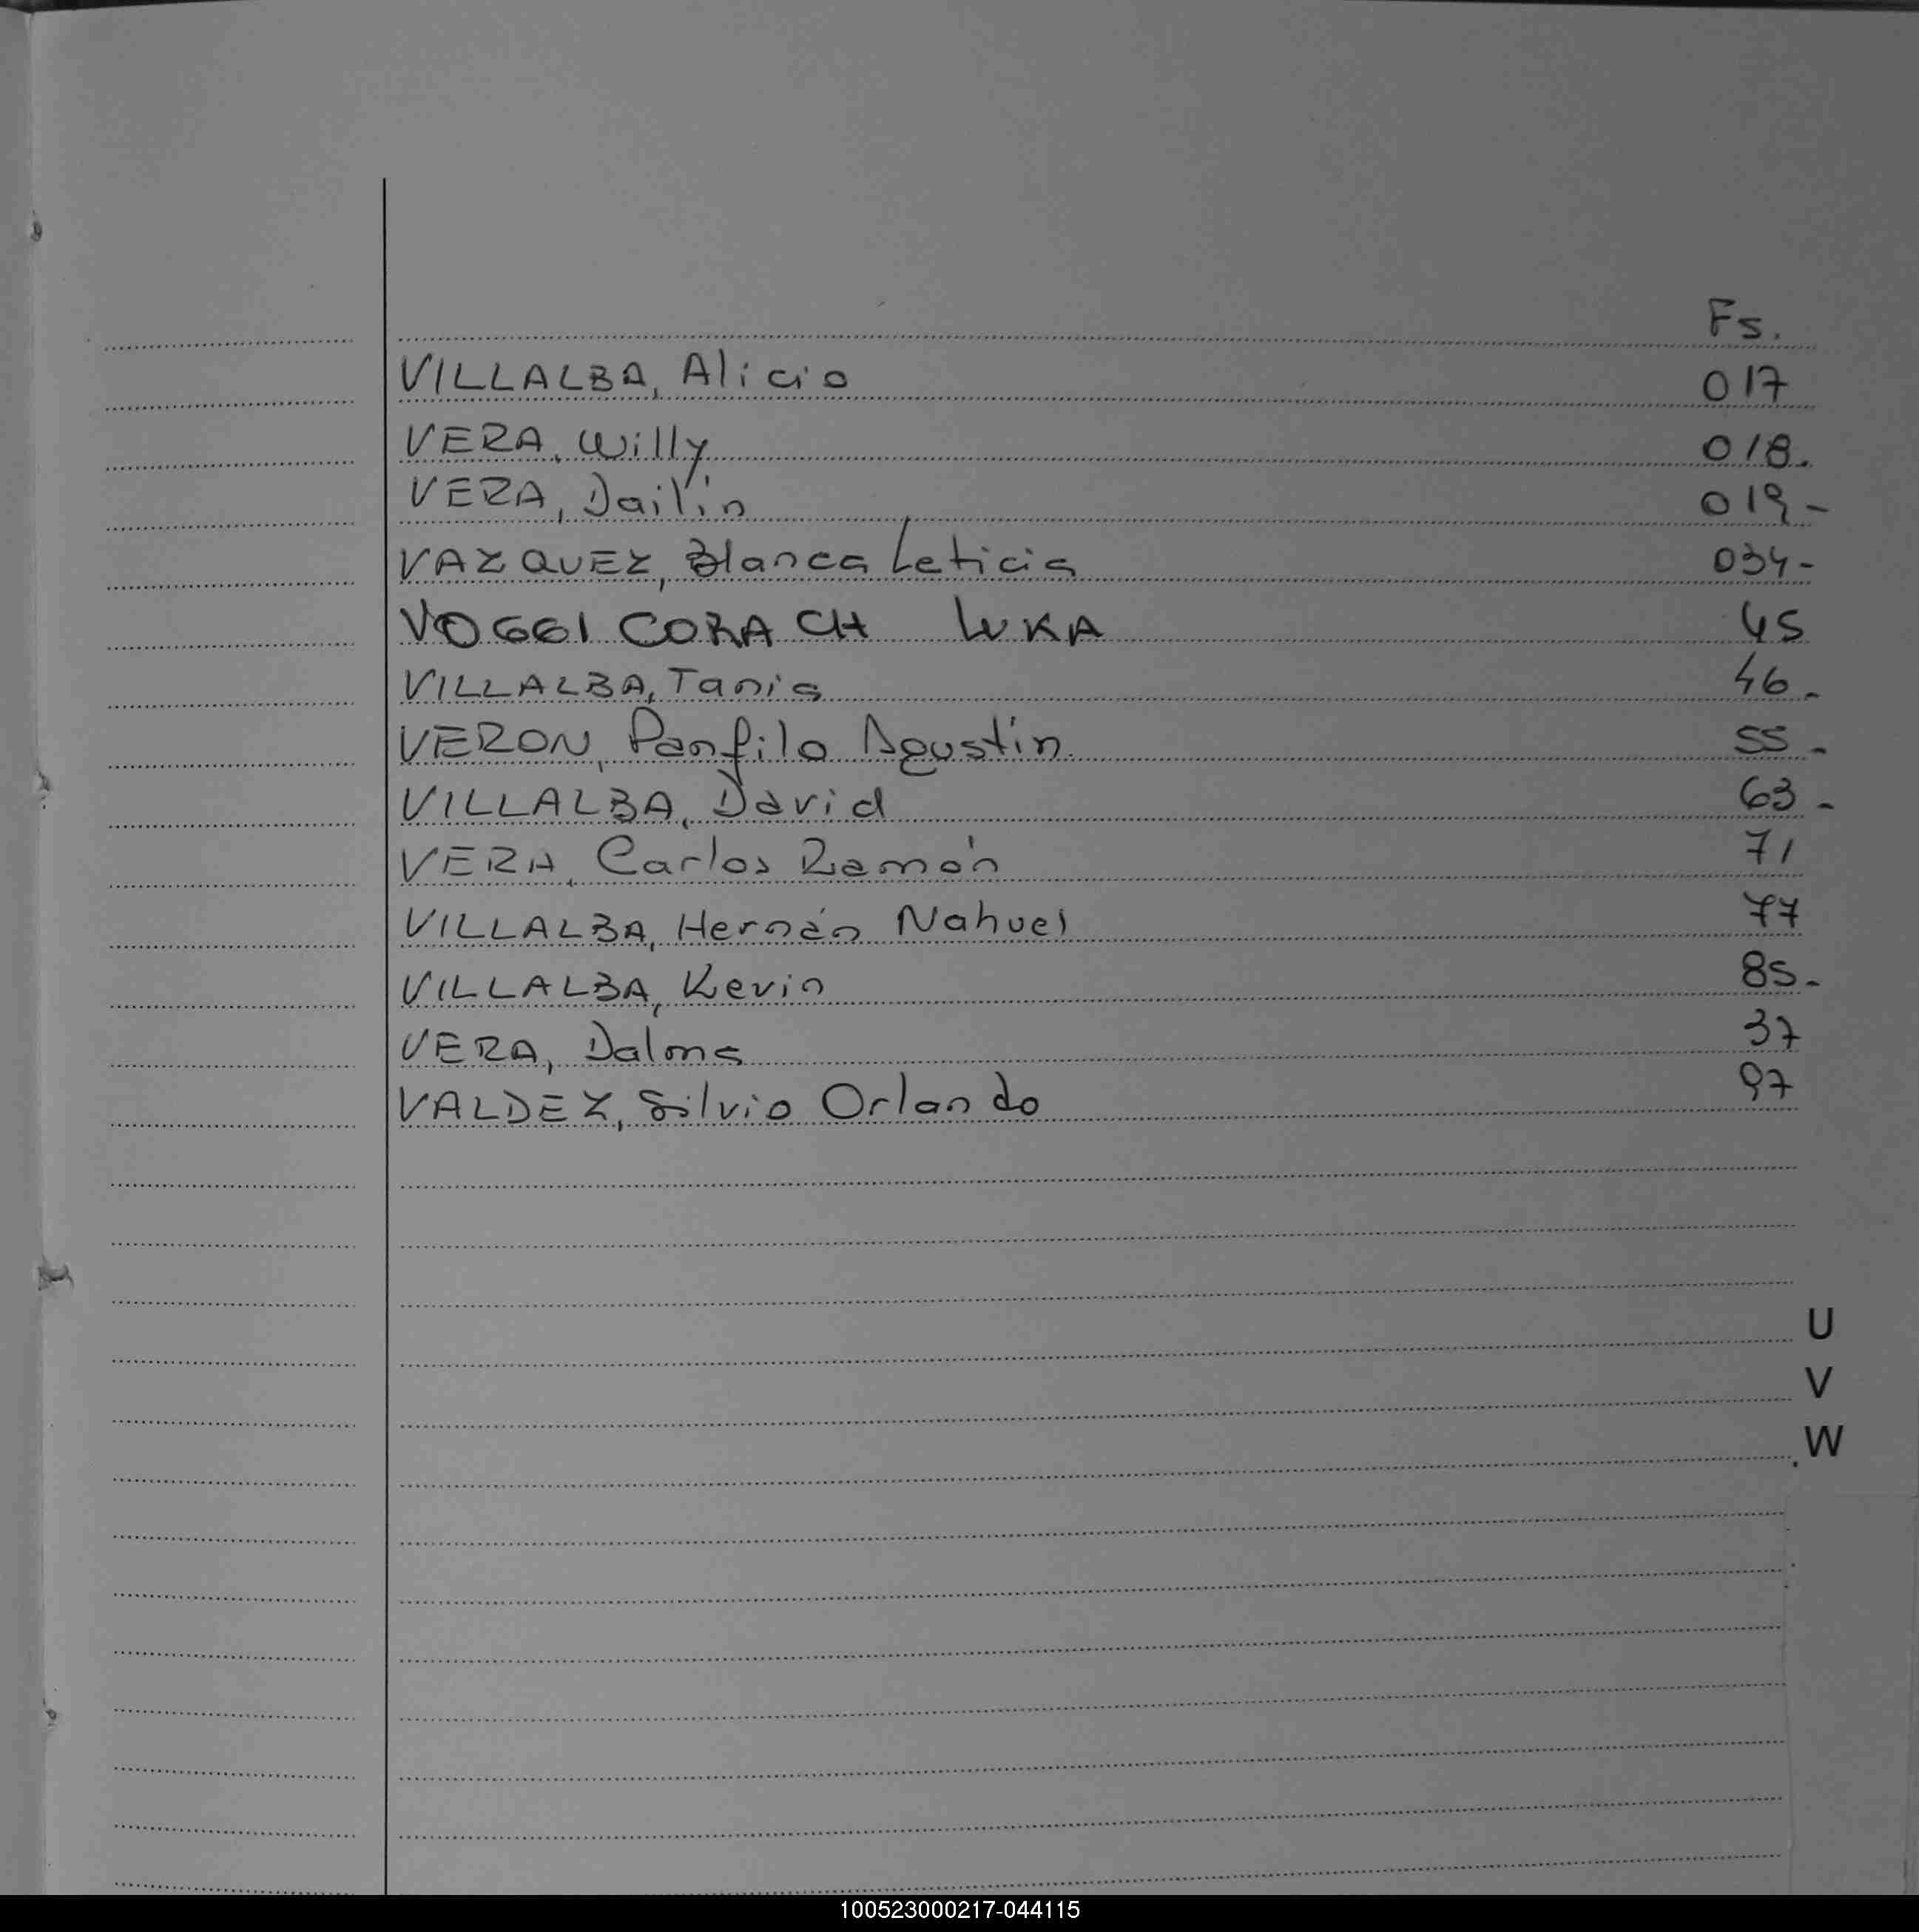 Fs.
VILLALBA, Alicia 017
VERA, Willy 018.
VERA, Dailín 019-
VAZQUEZ, Blanca Leticia 034-
VOGGI CORACH LUKA 45
VILLALBA, Tania 46-
VERON, Panfilo Agustín. 55-
VILLALBA, David 63-
VERA, Carlos Ramón 71
VILLALBA, Hernán Nahuel 77
VILLALBA, Kevin 85-
VERA, Dalma 37
VALDEZ, Silvio Orlando 97
U
V
W
100523000217-044115